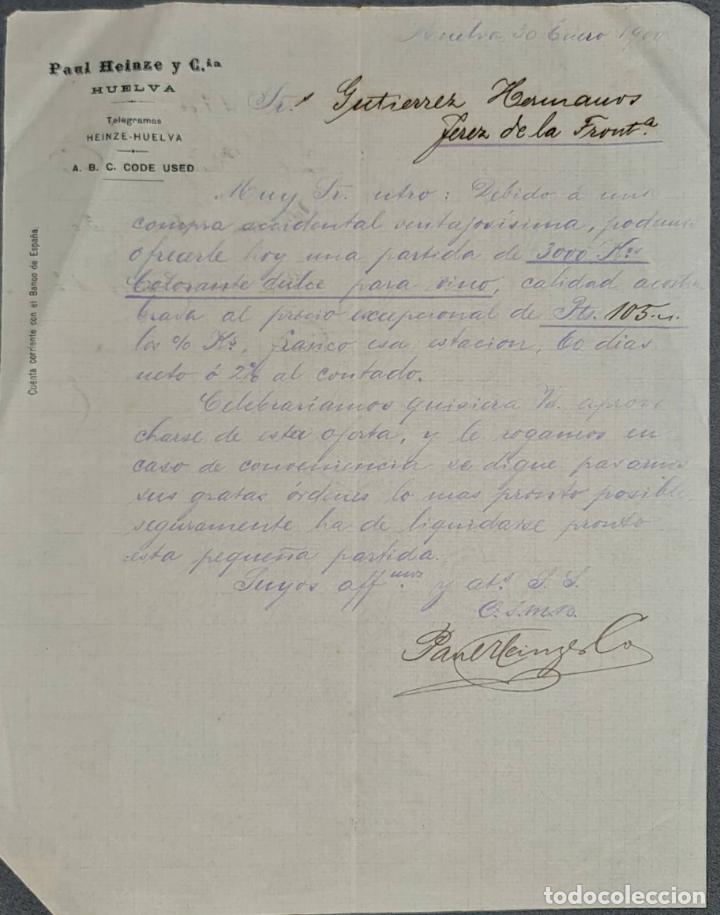 Huelva, 30 Enero 1900
Paul Heinze y C.ía
HUELVA
Telegramas
HEINZE-HUELVA
A. B. C. CODE USED
Cuenta corriente con el Banco de España.
Sr.s Gutierrez Hermanos
Jerez de la Front.a
Muy Sr. ntro: Debido á una
compra accidental ventajosísima, podemos
ofrecerle hoy una partida de 3000 K.os
Colorante dulce para vino, calidad acostum
brada al precio excepcional de Pts. 105.-
los % K.s, franco esa estacion, 60 dias
neto ó 2% al contado.
Celebrariamos quisiera Vd. aprove
charse de esta oferta, y le rogamos en
caso de conveniencia se digne pasarnos
sus gratas órdenes lo mas pronto posible,
seguramente ha de liquidarse pronto
esta pequeña partida.
Suyos aff.mos y at.s S. S.
Q. s. m. b.
Paul Heinze & Co
todocoleccion